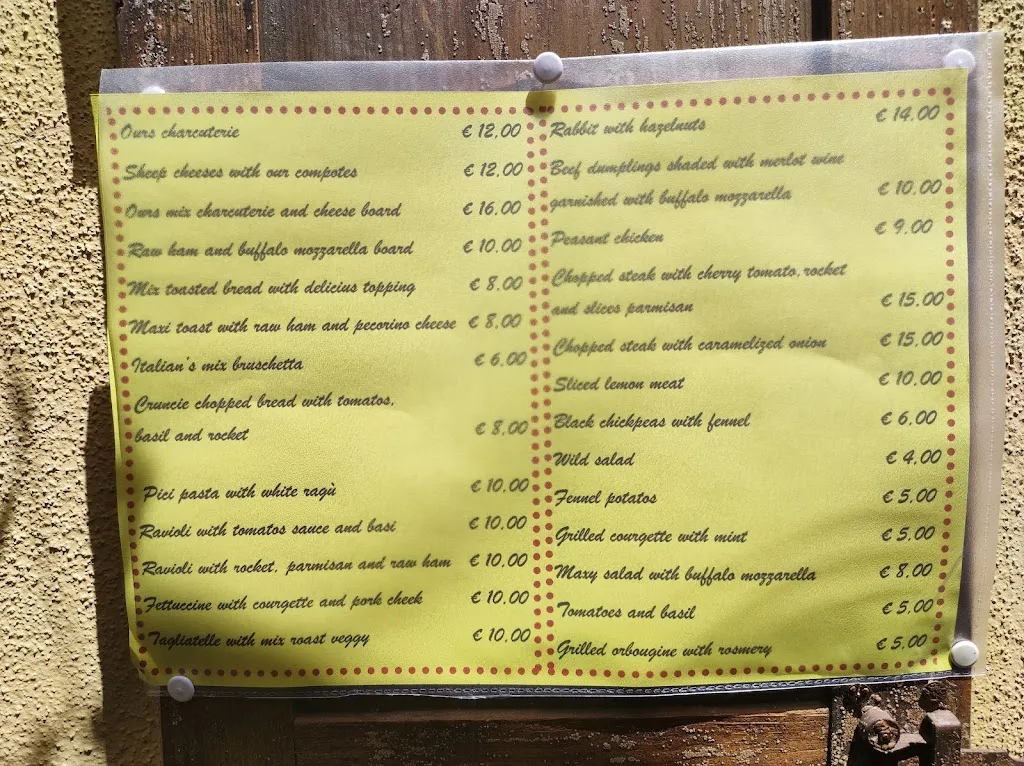 Ours charcuterie € 12,00
Sheep cheeses with our compotes € 12,00
Ours mix charcuterie and cheese board € 16,00
Raw ham and buffalo mozzarella board € 10,00
Mix toasted bread with delicius topping € 8,00
Maxi toast with raw ham and pecorino cheese € 8,00
Italian's mix bruschetta € 6,00
Cruncie chopped bread with tomatos,
basil and rocket € 8,00
Pici pasta with white ragù € 10,00
Ravioli with tomatos sauce and basi € 10,00
Ravioli with rocket, parmisan and raw ham € 10,00
Fettuccine with courgette and pork cheek € 10,00
Tagliatelle with mix roast veggy € 10,00
Rabbit with hazelnuts € 14,00
Beef dumplings shaded with merlot wine
garnished with buffalo mozzarella € 10,00
Peasant chicken € 9,00
Chopped steak with cherry tomato, rocket
and slices parmisan € 15,00
Chopped steak with caramelized onion € 15,00
Sliced lemon meat € 10,00
Black chickpeas with fennel € 6,00
Wild salad € 4,00
Fennel potatos € 5,00
Grilled courgette with mint € 5,00
Maxy salad with buffalo mozzarella € 8,00
Tomatoes and basil € 5,00
Grilled orbougine with rosmery € 5,00